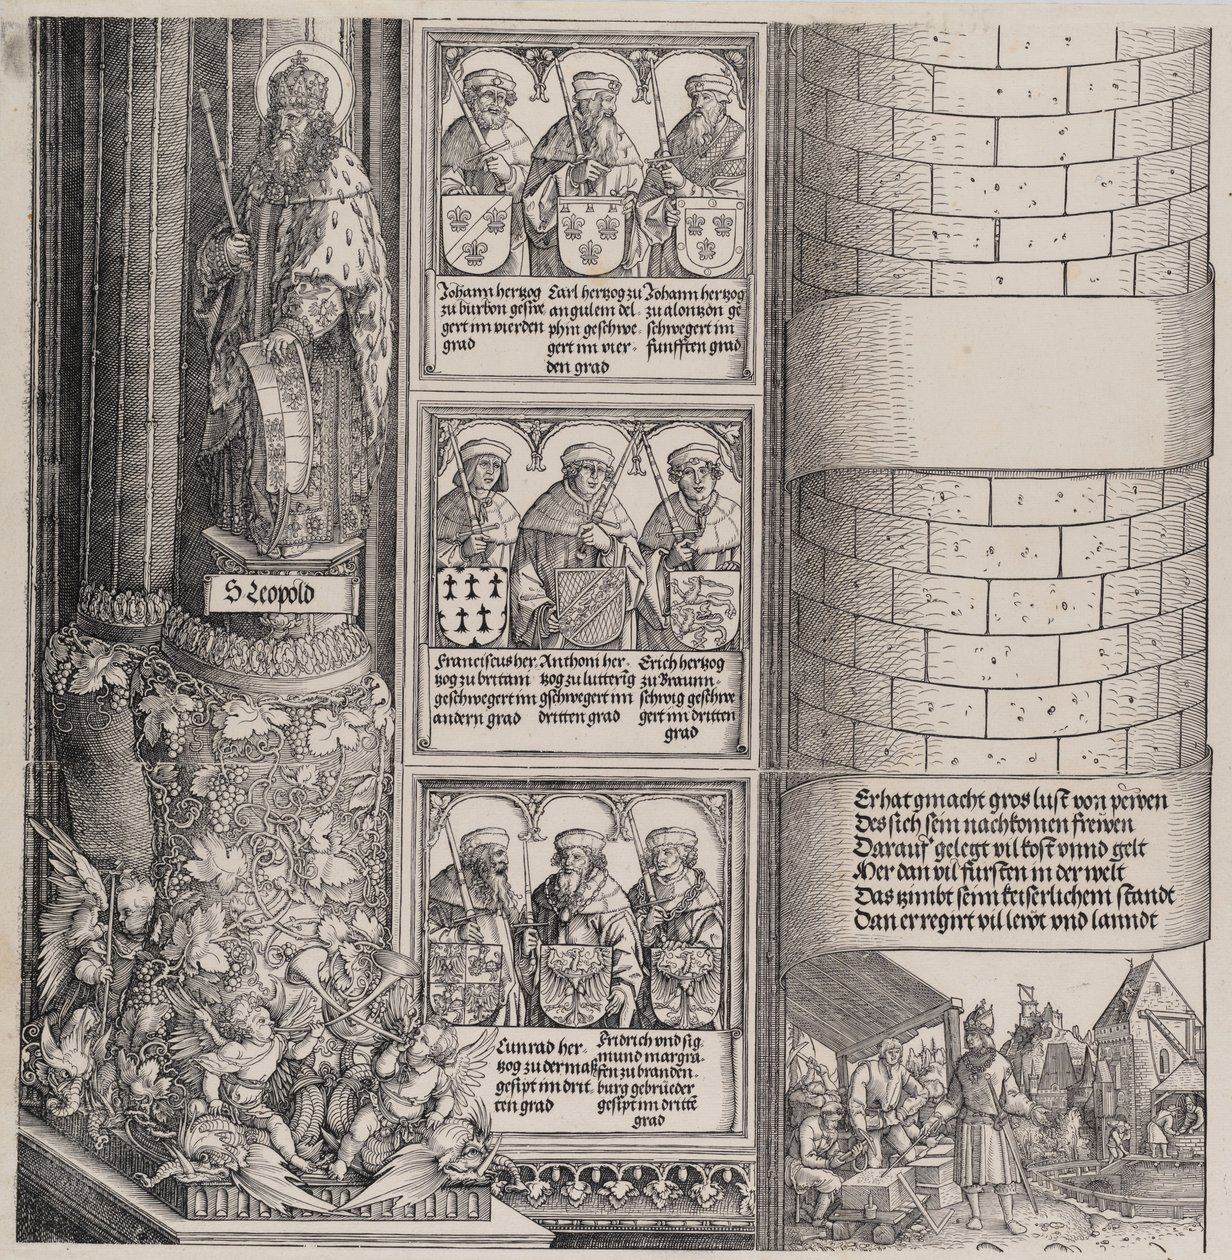 S Leopold
Johann hertzog
zu burbon geswe
gert im vierden
grad
Carl hertzog zu
angulem del-
phin geschwe-
gert im vier-
den grad
Johann hertzog
zu alonzon ge
schwegert im
funfften grad
Franciscus her
tzog zu britani
geschwegert im
andern grad
Anthoni her-
tzog zu lutterig
gschwegert im
dritten grad
Erich hertzog
zu Braunn-
schwig geschwe
gert im dritten
grad
Cunrad her-
tzog zu der maß
gesipt im drit
ten grad
Fridrich vnd sig
mund margra-
fen zu branden-
burg gebrueder
gesipt im dritte
grad
Er hat gmacht gros lust von pewen
Des sich sein nachkomen frewen
Darauf gelegt vil kost vnnd gelt
Mer dan vil fursten in der welt
Das zimbt seim keiserlichem standt
Dan er regirt vil lewt vnd lanndt